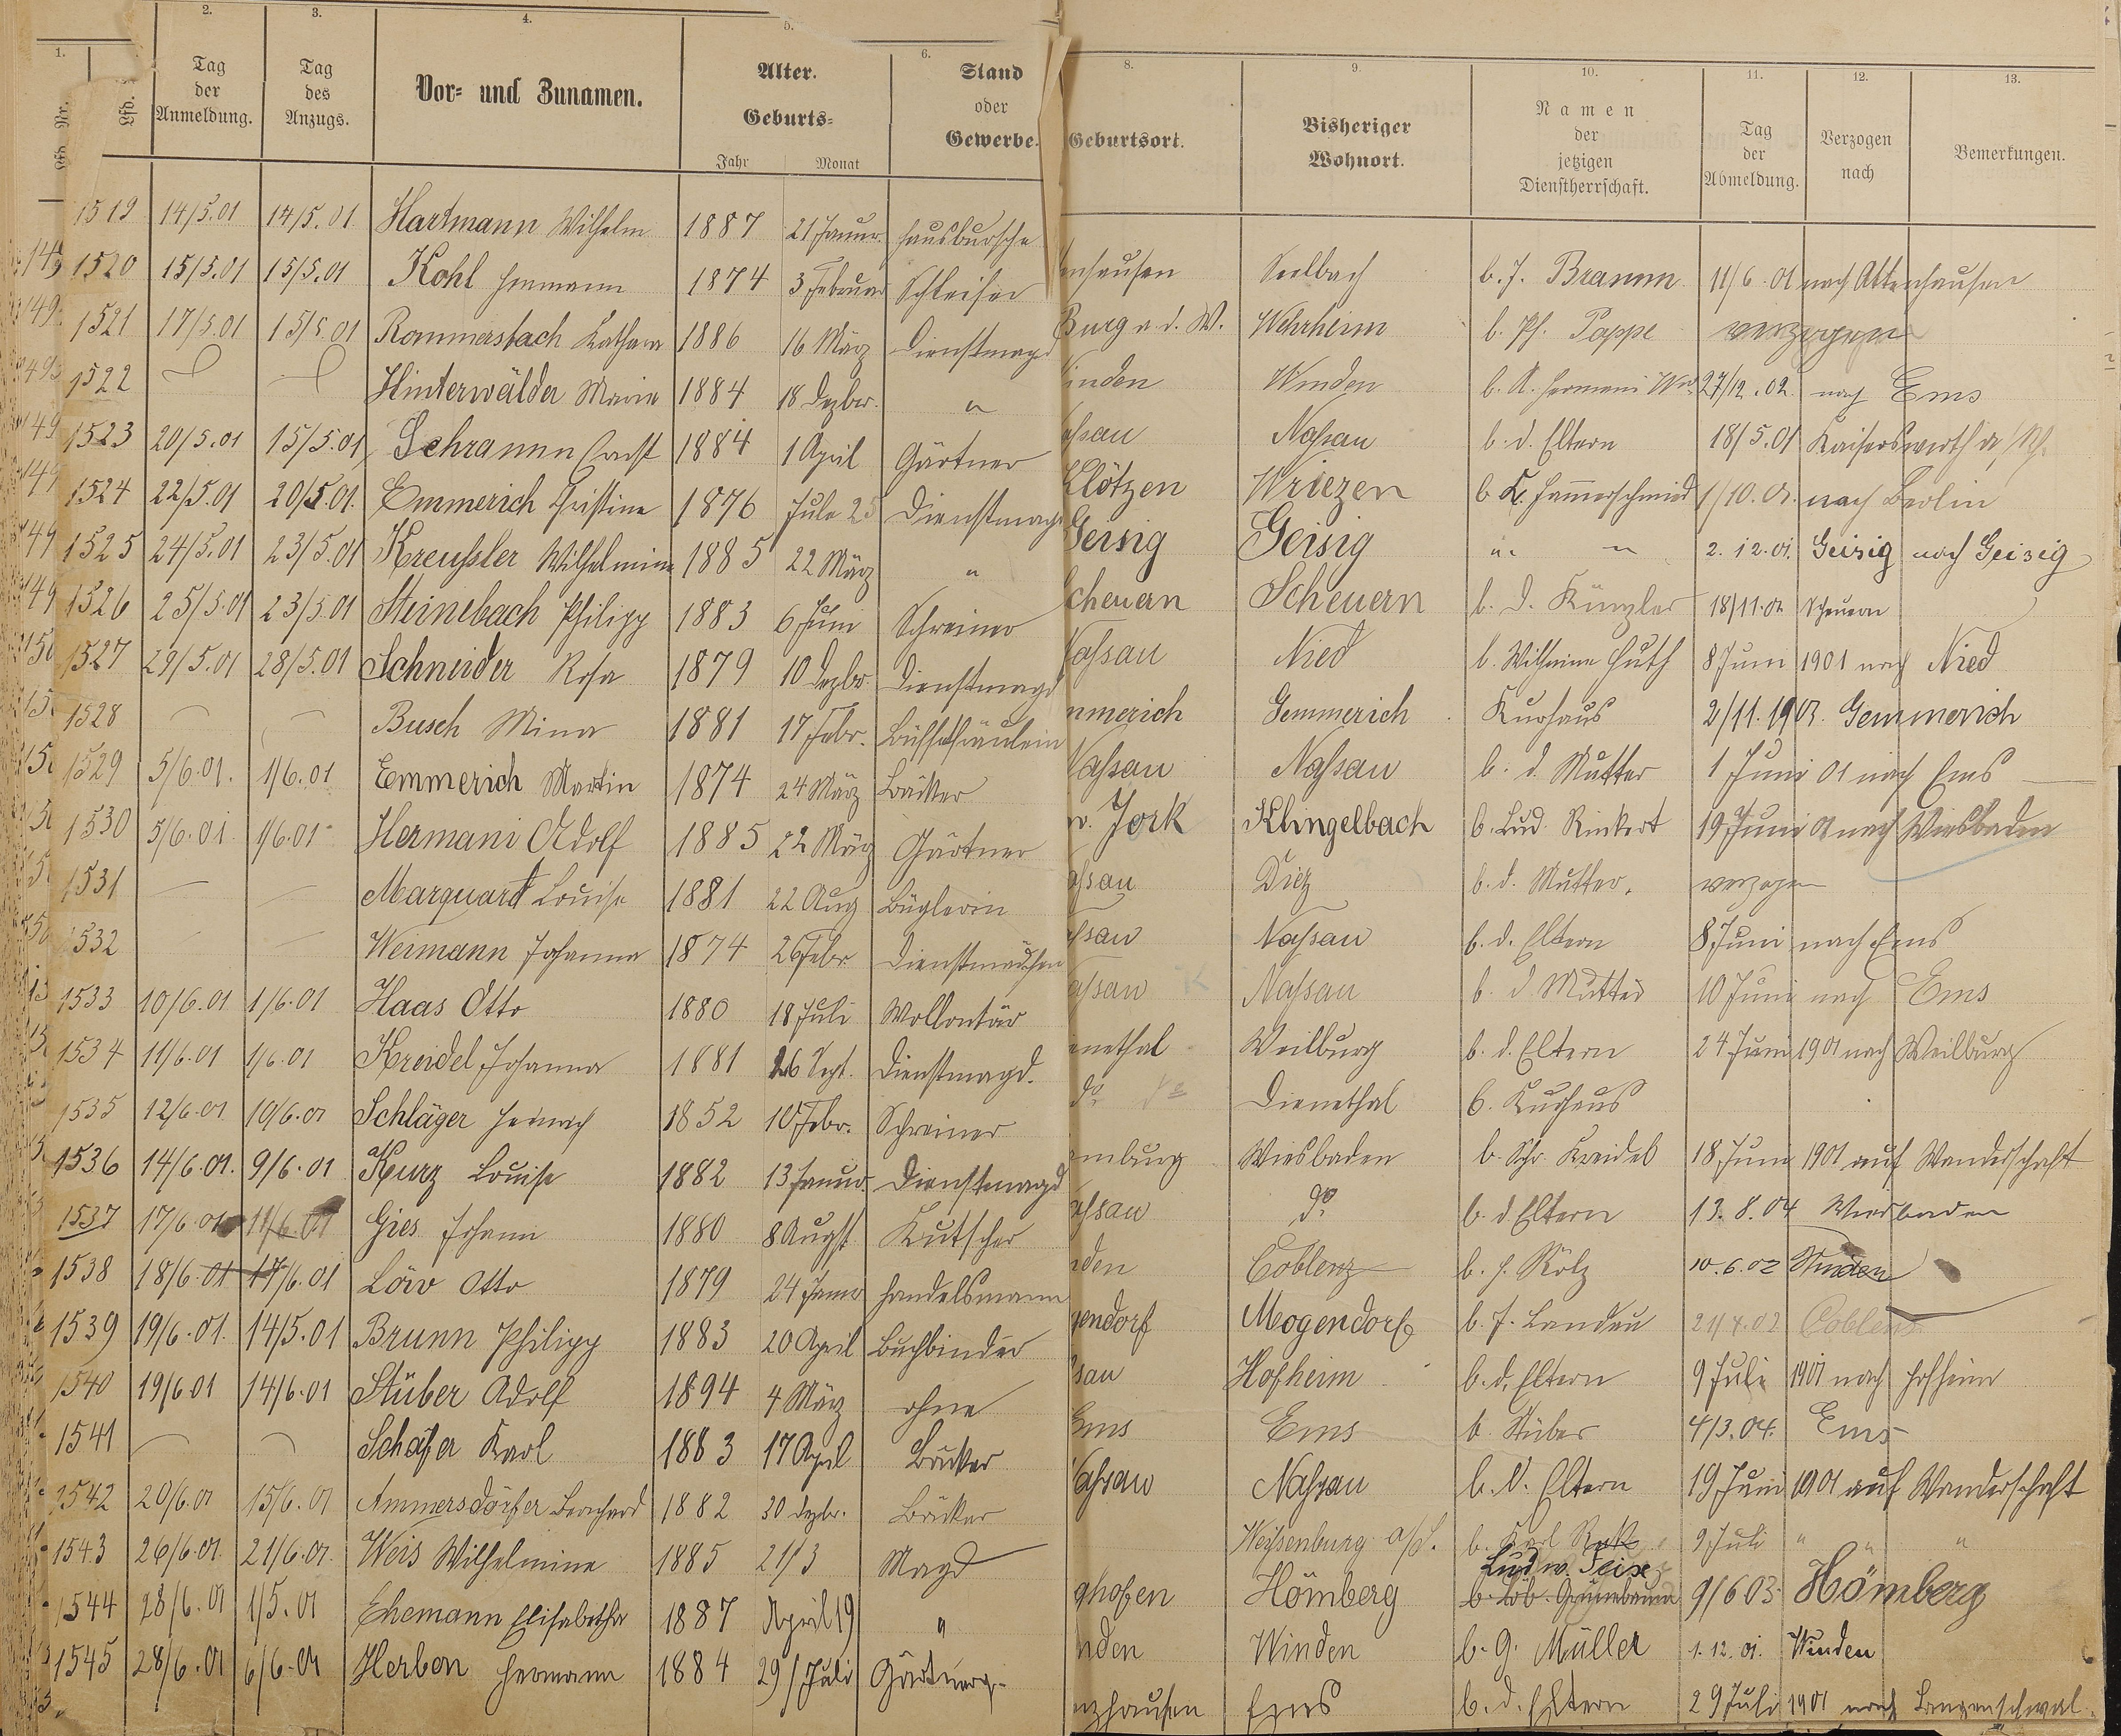 1.
2.
3.
4.
5.
6.
Lfd. Nr.
Lfd.
Tag der Anmeldung.
Tag des Anzugs.
Vor- und Zunamen.
Alter.
Geburts-
Jahr
Monat
Stand oder Gewerbe.
1519 14/5.01 14/5.01 Hartmann Wilhelm 1887 21 Januar Hausbursche
1520 15/5.01 15/5.01 Kohl Hermann 1874 3 Februar Schleifer
1521 17/5.01 15/5.01 Rommersbach 1886 16 März Dienstmagd
1522 Hinterwälder Marie 1884 18 Dezber. "
1523 20/5.01 15/5.01 Schramm Ernst 1884 1 April Gärtner
1524 22/5.01 20/5.01. Emmerich Christine 1876 25 Dienstmagd
1525 24/5.01 23/5.01 Kreußler Wilhelmine 1885 22 März "
1526 25/5.01 23/5.01 Steinebach Philipp 1883 6 Juni Schreiner
1527 29/5.01 28/5.01 Schneider Rosa 1879 10 Dezbr Dienstmagd
1528 Busch Mina 1881 17 Febr. Büffetfräulein
1529 5/6.01. 1/6.01 Emmerich Martin 1874 24 März Bäcker
1530 5/6.01 1/6.01 Hermani Adolf 1885 22 März Gärtner
1531 Marquard Louise 1881 22 Aug Büglerin
1532 Weimann Johanna 1874 26 Febr Dienstmädchen
1533 10/6.01 1/6.01 Haas Otto 1880 18 Juli Wollontär
1534 11/6.01 1/6.01 Kreidel Johanna 1881 26 Sept. Dienstmagd.
1535 12/6.01 10/6.01 Schläger Heinrich 1852 10 Febr. Schreiner
1536 14/6.01. 9/6.01 Kurz Louise 1882 13 Januar Dienstmagd
1537 17/6.01 11/6.01 Gies Johann 1880 8 Augst Kutscher
1538 18/6.01 17/6.01 Löw Otto 1879 24 Janr Handelsmann
1539 19/6.01. 14/5.01 Brunn Philipp 1883 20 April Buchbinder
1540 19/6 01 14/6.01 Stüber Adolf 1894 4 März ohne
1541 Schäfer Karl 1883 17 April Bäcker
1542 20/6.01 15/6.01 Ammersdörfer Bernhard 1882 30 Dezbr. Bäcker
1543 26/6.01. 21/6.01. Weis Wilhelmine 1885 21/3 Magd
1544 28/6.01 1/5.01 Ehemann Elisabetha 1887 April 19 "
1545 28/6.01 6/6.01 Herbon Hermann 1884 29/Juli
8.
9.
10.
11.
12.
13.
Geburtsort.
Bisheriger Wohnort.
Namen der jetzigen Dienstherrschaft.
Tag der Abmeldung.
Verzogen nach
Bemerkungen.
nhausen Seelbach b. J. Bramm 11/6.01 nach Attenhausen
Burg a. d. W. Wehrheim b. Ph. Pappe verzogen
inden Winden b. A. Hermani Ww. 27/12.02. nach Ems
assau Nassau b. d. Eltern 18/5.01 Kaiserswerth a/Rh.
Klötzen Wriezen b. K. Hammerschmied 1/10.01. nach Berlin
Geisig Geisig " " 2.12.01. Geisig nach Geisig
cheuern Scheuern b. D. Künzler 18/11.01 Scheuern
Nassau Nied b. Wilhelm Huth 8 Juni 1901 nach Nied
mmerich Gemmerich Kurhaus 2/11.1901. Gemmerich
Nassau Nassau b. d. Mutter 1 Juni 01 nach Ems
w. York Klingelbach b. Lud. Rinkert 19 Juni 01 nach Wiesbaden
assau Diez b. d. Mutter. verzogen
assau Nassau b. d. Eltern 8 Juni nach Ems
assau Nassau b. d. Mutter 10 Juni nach Ems
enethal Weilburg b. d. Eltern 24 Juni 1901 nach Weilburg
do Dienethal b. Kurhaus
mburg Wiesbaden b. Schr. Kreidel 18 Juni 1901 auf Wanderschaft
assau do b. d Eltern 13.8.04 Wiesbaden
nden Coblenz b. H. Kölz 10.6.02 Winden
gendorf Mogendorf b. J. Landau 21/4.02 Coblenz
sau Hofheim b. d. Eltern 9 Juli 1901 nach Hofheim
Ems Ems b. Stüber 4/3.04. Ems
Nassau Nassau b. d. Eltern 19 Juni 1901 auf Wanderschaft
Weissenburg a/S. b. Karl 9 Juli " " "
Ludw.
ghofen Hömberg b. Löb Grünebaum 9/6 03. Hömberg
nden Winden b. G. Müller 1.12.01. Winden
nzhausen Ems b. d. Eltern 29 Juli 1901 nach Langenschwal.